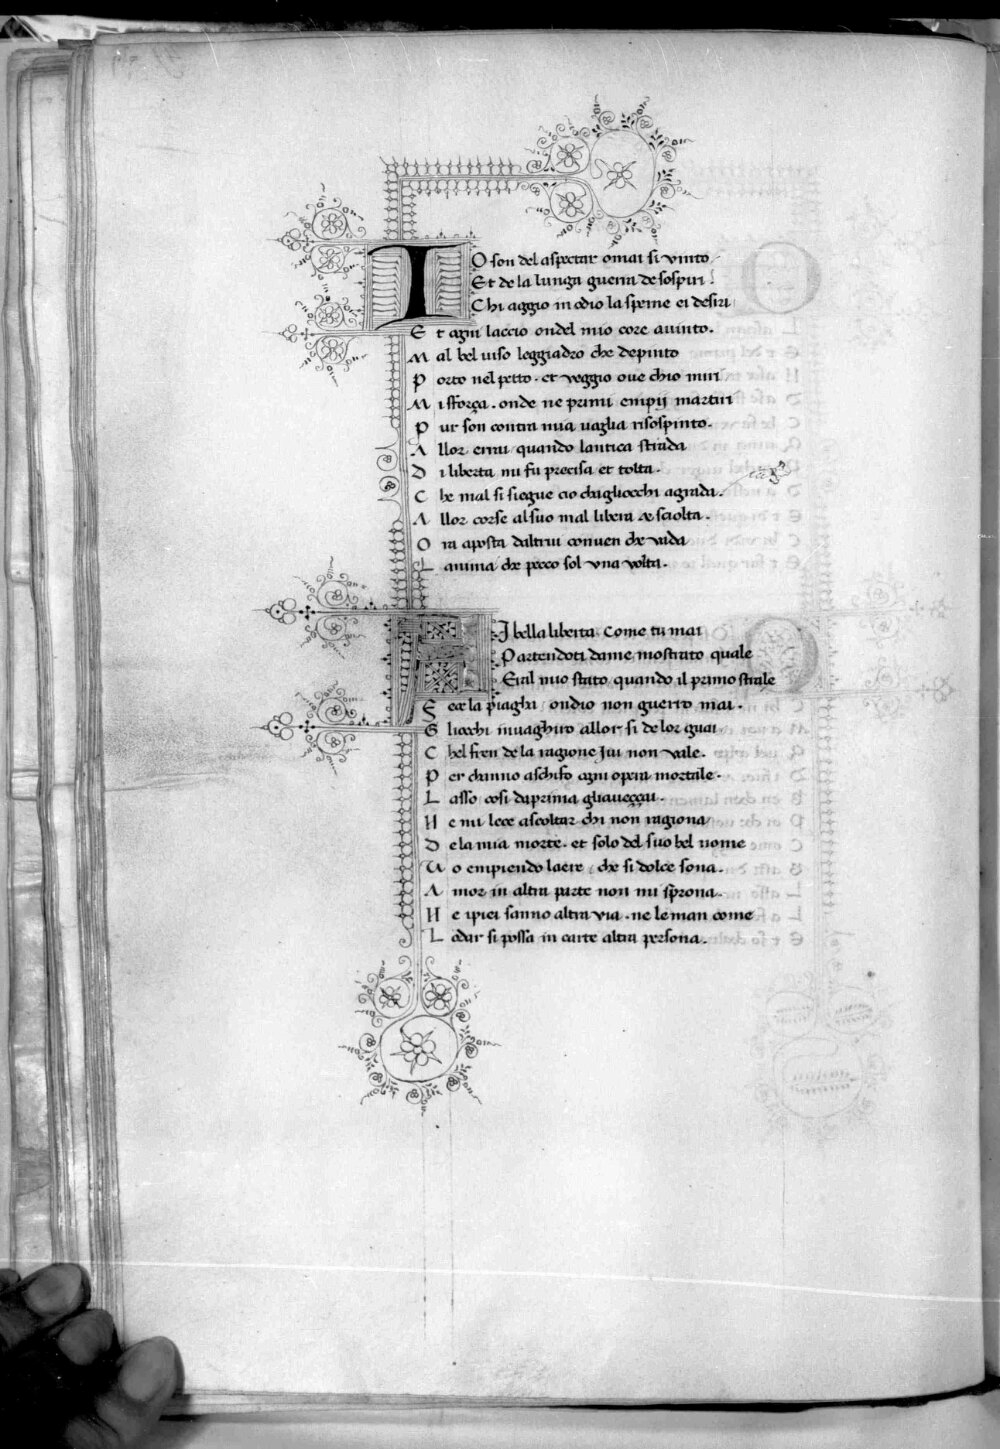 IO son del aspectar omai si vinto
Et de la lunga guerra de sospiri
Chi aggio in odio la speme ei desiri
Et ogni laccio ondel mio core avinto.
Mal bel viso leggiadro che depinto
Porto nel petto. et veggio ove chio miri
Mi sforça. onde ne primi empij martiri
Pur son contra mia vaglia risospinto.
Allor errai quando lantica strada
Di liberta mi fu precisa et tolta.
Che mal si siegue cio chagliocchi agrada.
Allor corse al suo mal libera & sciolta.
Ora aposta daltrui conven che vada
Lanima che pecco sol una volta.
AI bella liberta. come tu mai
Partendoti dame mostrato quale
Eral mio stato. quando il primo strale
Fece la piagha ondio non guerro mai.
Gliocchi invaghiro allor si de lor guai
Chel fren de la ragione Jvi non vale.
Per channo aschifo ogni opera mortale.
Lasso cosi daprima gliaveççai.
Ne mi lece ascoltar chi non ragiona
De la mia morte. et solo del suo bel nome
Vo empiendo laere che si dolce sona.
Amor in altra parte non mi sprona.
Ne ipiei sanno altra via. ne le man come
Lodar si possa in carte altra persona.